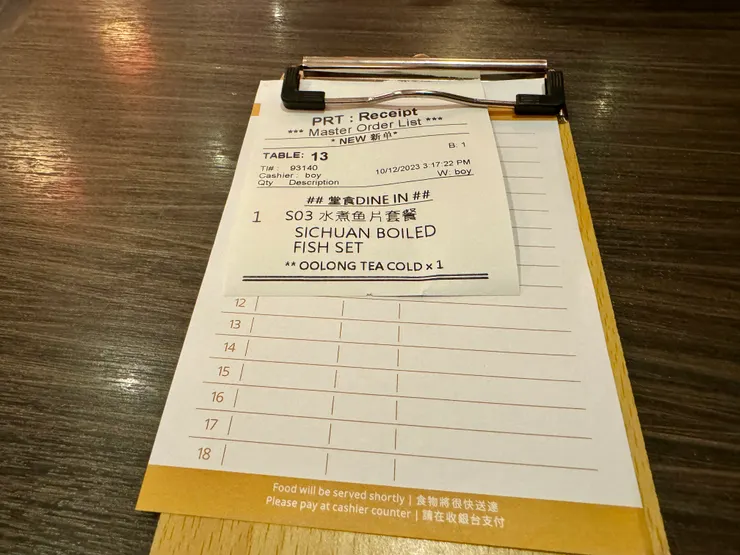 PRT : Receipt
*** Master Order List ***
* NEW 新单*
B: 1
TABLE: 13
TI#: 93140
10/12/2023 3:17:22 PM
Cashier: boy
W: boy
Qty Description
## 堂食DINE IN ##
1 S03 水煮鱼片套餐
SICHUAN BOILED
FISH SET
** OOLONG TEA COLD x 1
12
13
14
15
16
17
18
Food will be served shortly | 食物將很快送達
Please pay at cashier counter | 請在收銀台支付